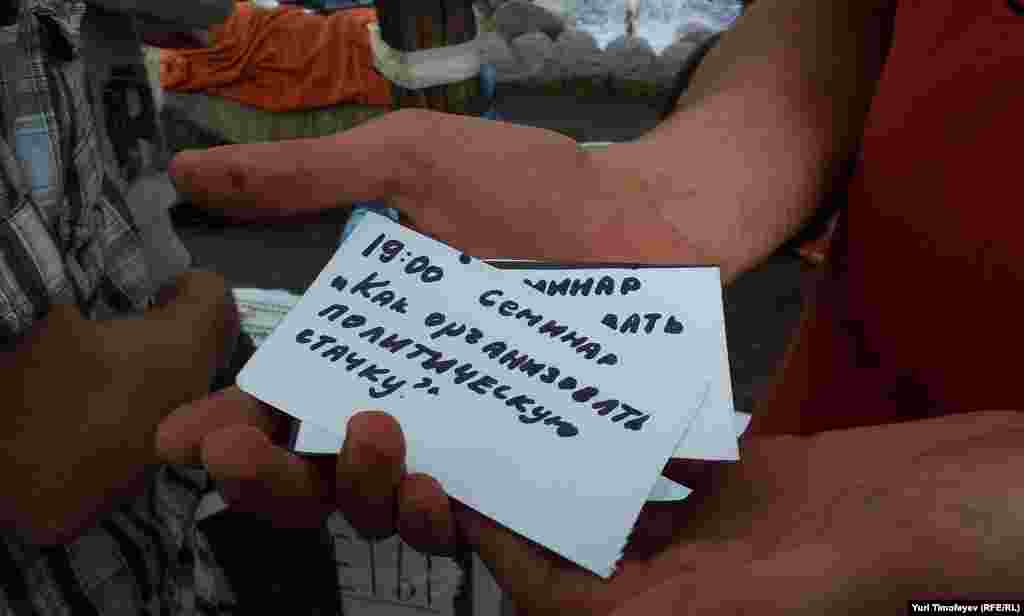 19:00 семинар
„Как организовать
политическую
стачку?"
минар
вать
Yuri Timofeyev (RFE/RL)